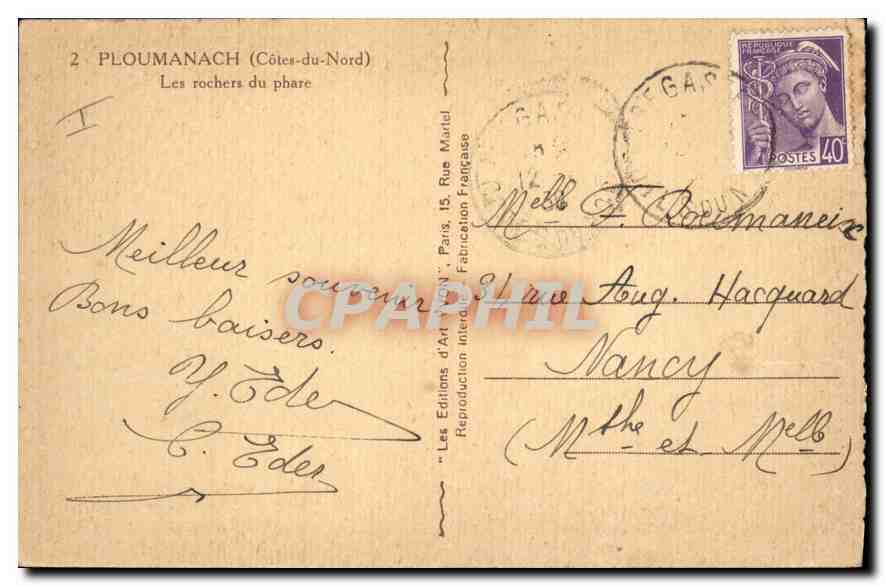 2 PLOUMANACH (Côtes-du-Nord)
Les rochers du phare
Meilleur souvenir
Bons baisers.
Y. Eder
C. Eder
"Les Editions d'Art YVON", Paris, 15, Rue Martel
Reproduction Interdite Fabrication Française
RÉPUBLIQUE
FRANÇAISE
POSTES 40c
GARE
VERDUN
GARE
12
Melle F. Roumaneix
31 rue Aug. Hacquard
Nancy
(Mthe et Melle)
CPAPHIL